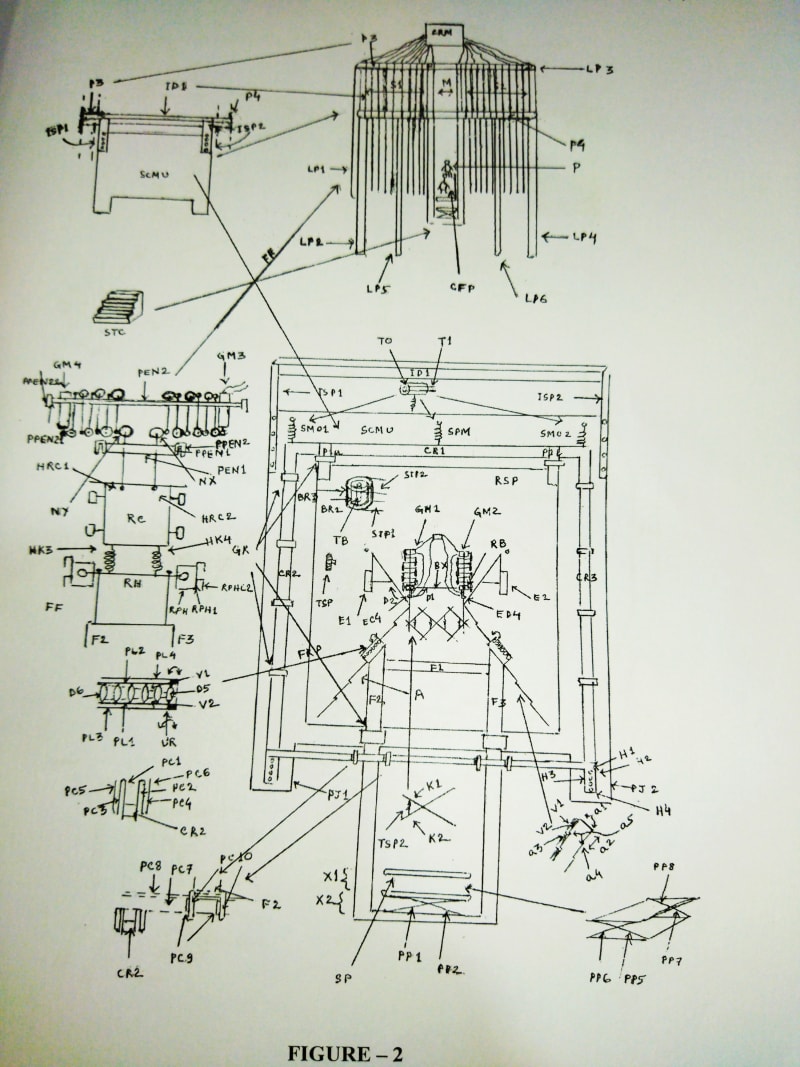 CRM
P3
LP3
P3
IDB
P4
S1
M
S2
ISP1
ISP2
P4
SCMU
LP1
P
LP2
FR
LP4
LP5
CFP
LP6
STC
TO
T1
GM4
PEN2
GM3
ID1
ISP1
ISP2
SMO1
SCMU
SPM
SMO2
CR1
PPEN2
PPEN1
HRC1
PEN1
NX
NX
BR3
STP2
RSP
BR2
TB
STP1
GM1
GM2
RC
HRC2
HK3
HK4
GR
RB
BX
CR2
CR3
RH
TSP
RPHC2
RPH
RPH1
D2
D1
E1
EC4
ED4
E2
FF
F2
F3
FRP
F1
PL2
PL4
V1
D6
D5
V2
A
F2
F3
PL3
PL1
UR
PC1
PC6
PC5
PC2
PC3
PC4
CR2
H1
H2
H3
PJ1
PJ2
H4
K1
V1
V2
a1
a5
a3
a2
a4
TSP2
K2
PC10
PC8
PC7
X1
X2
PP8
F2
PC9
CR2
SP
PP1
PP2
PP6
PP5
PP7
FIGURE – 2